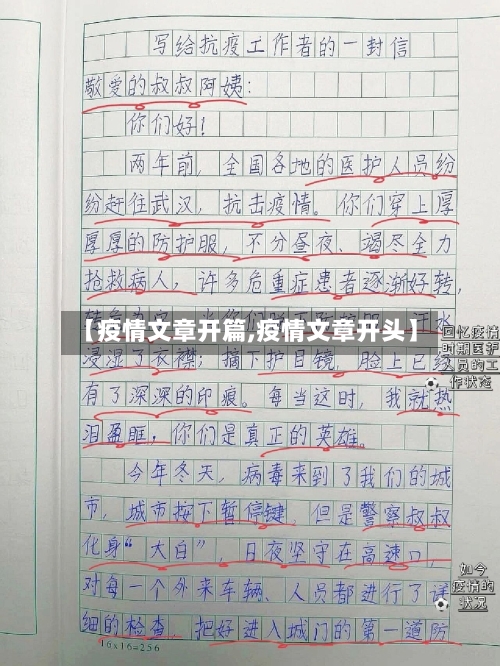 写给抗疫工作者的一封信
敬爱的叔叔阿姨:
你们好!
两年前,全国各地的医护人员纷
纷赶往武汉,抗击疫情。你们穿上厚
厚厚的防护服,不分昼夜、竭尽全力
抢救病人,许多危重症患者逐渐好转,
【疫情文章开篇,疫情文章开头】
浸湿了衣襟;摘下护目镜,脸上已经
有了深深的印痕。每当这时,我就热
泪盈眶,你们是真正的英雄。
今年冬天,病毒来到了我们的城
市,城市按下暂停键,但是警察叔叔
化身“大白”,日夜坚守在高速口,
对每一个外来车辆、人员都进行了详
细的检查,把好进入城门的第一道防
16×16=256
回忆疫情
时期医护
人员的工
作状态
如今
疫情的
状况